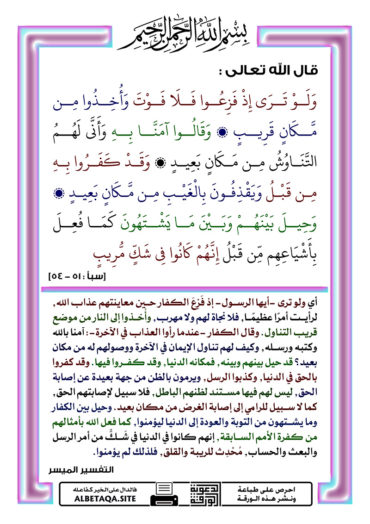 بِسْمِ اللَّهِ الرَّحْمَٰنِ الرَّحِيمِ
قال الله تعالى :
وَلَوْ تَرَى إِذْ فَزِعُوا فَلَا فَوْتَ وَأُخِذُوا مِن
مَّكَانٍ قَرِيبٍ ۞ وَقَالُوا آمَنَّا بِهِ وَأَنَّى لَهُمُ
التَّنَاوُشُ مِن مَكَانٍ بَعِيدٍ ۞ وَقَدْ كَفَرُوا بِهِ
مِن قَبْلُ وَيَقْذِفُونَ بِالْغَيْبِ مِن مَّكَانٍ بَعِيدٍ ۞
وَحِيلَ بَيْنَهُمْ وَبَيْنَ مَا يَشْتَهُونَ كَمَا فُعِلَ
بِأَشْيَاعِهِم مِّن قَبْلُ إِنَّهُمْ كَانُوا فِي شَكٍّ مُّرِيبٍ
[سبأ : ٥١ – ٥٤]
أي ولو ترى -أيها الرسول- إذ فَزِعَ الكفار حين معاينتهم عذاب الله،
لرأيت أمرًا عظيمًا، فلا نجاة لهم ولا مهرب، وأخذوا إلى النار من موضع
قريب التناول. وقال الكفار -عندما رأوا العذاب في الآخرة-: آمنا بالله
وكتبه ورسله، وكيف لهم تناول الإيمان في الآخرة ووصولهم له من مكان
بعيد؟ قد حيل بينهم وبينه، فمكانه الدنيا، وقد كفروا فيها. وقد كفروا
بالحق في الدنيا، وكذبوا الرسل، ويرمون بالظن من جهة بعيدة عن إصابة
الحق، ليس لهم فيها مستند لظنهم الباطل، فلا سبيل لإصابتهم الحق،
كما لا سبيل للرامي إلى إصابة الغرض من مكان بعيد. وحيل بين الكفار
وما يشتهون من التوبة والعودة إلى الدنيا ليؤمنوا، كما فعل الله بأمثالهم
من كفرة الأمم السابقة، إنهم كانوا في الدنيا في شَكٍّ من أمر الرسل
والبعث والحساب، مُحْدِث للريبة والقلق، فلذلك لم يؤمنوا.
التفسير الميسر
احرص على طباعة
ونشر هذه الورقة
الدعوية
الورقة
فالدال على الخير كفاعله
ALBETAQA.SITE